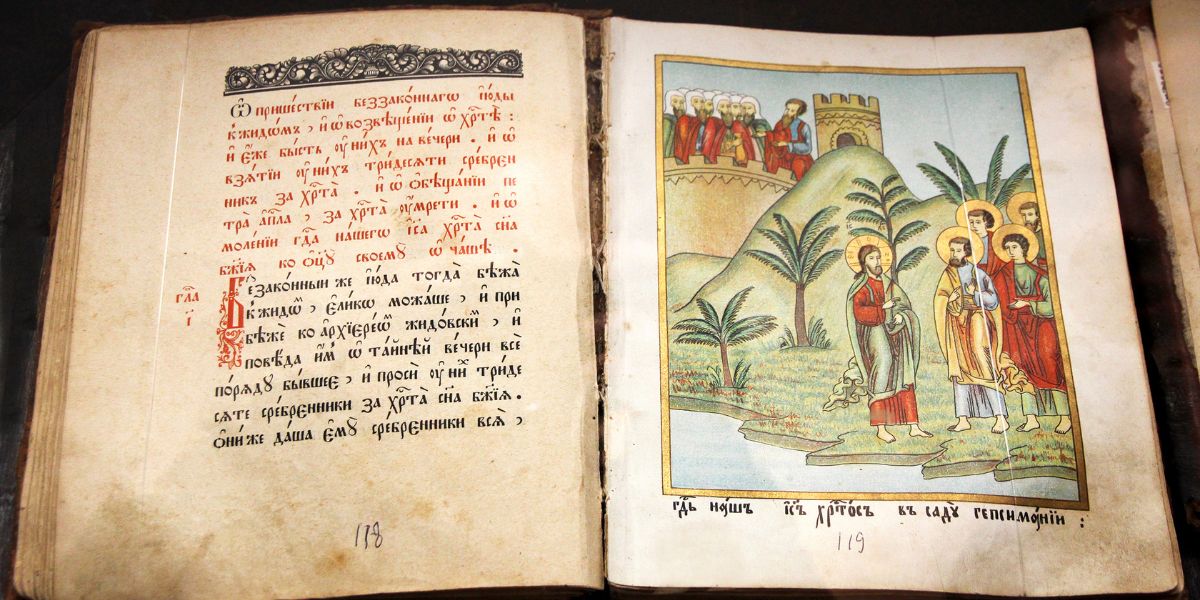 Ѡ пришествїи беззаконнагѡ іюды
к жидѡмъ , и ѡ возвѣщенїи ѡ хрⷭ҇тѣ :
и є҆же бысть ᲂу҆ нихъ на вечери . и ѡ
взѧтїи ᲂу҆ нихъ тридесѧти сребрен
никъ за хрⷭ҇та . и ѡ ѻбѣщанїи пе
тра а҆пⷭ҇ла , за хрⷭ҇та ᲂу҆мрети . и ѡ
моленїи гдⷭ҇а нашегѡ іс҃а хрⷭ҇та сн҃а
бж҃їѧ ко ѻц҃ꙋ своемꙋ ѡ чаши .
гла
і҃
Беззаконныи же іюда тогда бѣжа
к жидѡ , єликѡ можаше , и при
бѣже ко архїереѡ жидовски , и
повѣда им ѡ тайнѣй вечери всѐ
порѧдꙋ бывшее , и проси ᲂу них триде
сѧте сребренники за хрⷭ҇та сн҃а бж҃їѧ .
ѻни же даша ємꙋ сребренники всѧ ,
118
гдⷭ҇ь нашъ іс҃ъ хрⷭ҇тосъ въ садꙋ гепсиманїи :
119